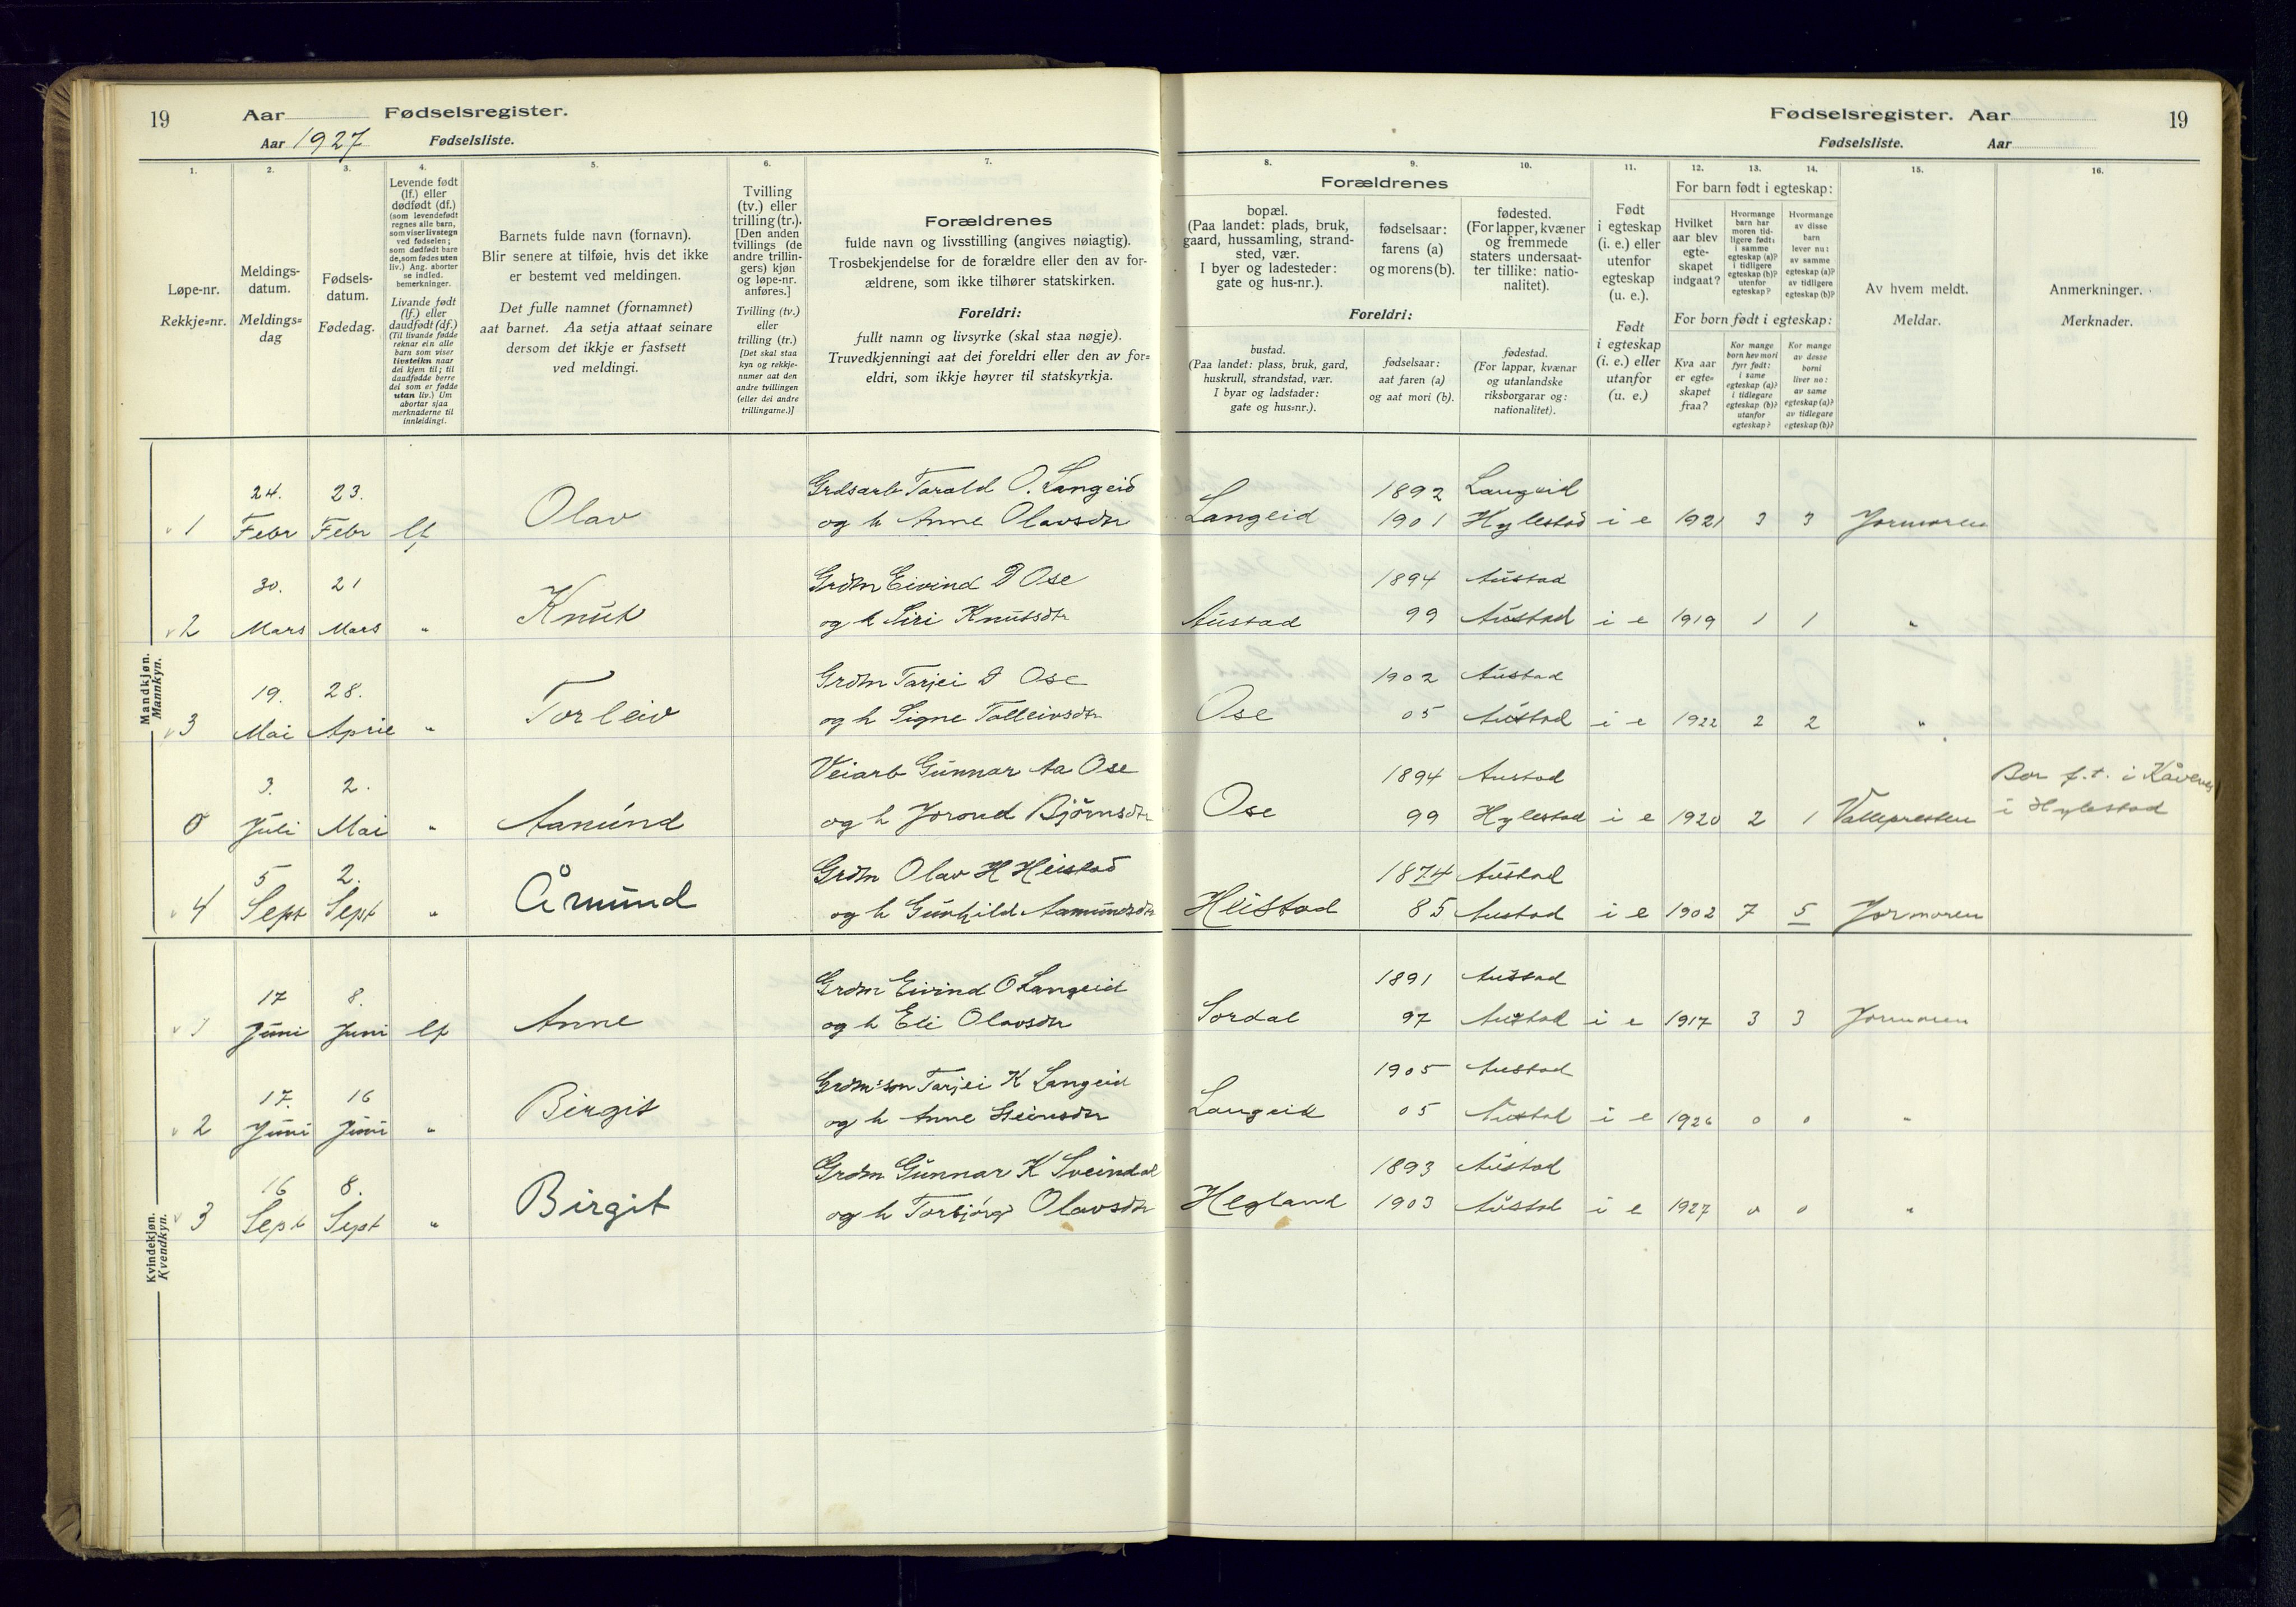 19 Aar Fødselsregister.
Aar 1927 Fødselsliste.
Fødselsregister. Aar 19
Fødselsliste. Aar
1. 2. 3. 4. 5. 6. 7.
Løpe-nr.
Rekkje=nr.
Meldings-
datum.
Meldings=
dag
Fødsels-
datum.
Fødedag.
Levende født
(lf.) eller
dødfødt (df.)
(som levendefødt
regnes alle barn,
som viser livstegn
ved fødselen;
som dødfødt bare
de, som fødes uten
liv.) Ang. aborter
se indled.
bemerkninger.
Livande født
(lf.) eller
daudfødt (df.)
(Til livande fødde
reknar ein alle
barn som viser
livsteikn naar
dei kjem til; til
daudfødde berre
dei som er fødde
utan liv.) Um
abortar sjaa
merknaderne til
innleidingi.
Barnets fulde navn (fornavn).
Blir senere at tilføie, hvis det ikke
er bestemt ved meldingen.
Det fulle namnet (fornamnet)
aat barnet. Aa setja attaat seinare
dersom det ikkje er fastsett
ved meldingi.
Tvilling
(tv.) eller
trilling (tr.).
[Den anden
tvillings (de
andre trillin-
gers) kjøn
og løpe-nr.
anføres.]
Tvilling (tv.)
eller
trilling (tr.)
[Det skal staa
kyn og rekkje-
numer aat den
andre tvillingen
(eller dei andre
trillingarne.)]
Forældrenes
fulde navn og livsstilling (angives nøiagtig).
Trosbekjendelse for de forældre eller den av for-
ældrene, som ikke tilhører statskirken.
Foreldri:
fullt namn og livsyrke (skal staa nøgje).
Truvedkjenningi aat dei foreldri eller den av for=
eldri, som ikkje høyrer til statskyrkja.
8. 9. 10. 11. 12. 13. 14. 15. 16.
Forældrenes
bopæl.
(Paa landet: plads, bruk,
gaard, hussamling, strand-
sted, vær.
I byer og ladesteder:
gate og hus-nr.).
fødselsaar:
farens (a)
og morens (b).
fødested.
(For lapper, kvæner
og fremmede
staters undersaat-
ter tillike: natio-
nalitet).
Foreldri:
bustad.
(Paa landet: plass, bruk, gard,
huskrull, strandstad, vær.
I byar og ladstader:
gate og hus=nr.).
fødselsaar:
aat faren (a)
og aat mori (b).
fødestad.
(For lappar, kvænar
og utanlandske
riksborgarar og:
nationalitet).
Født
i egteskap
(i. e.) eller
utenfor
egteskap
(u. e.).
Født
i egteskap
(i. e.) eller
utanfor
(u. e.)
For barn født i egteskap:
Hvilket
aar blev
egte-
skapet
indgaat?
Hvormange
barn har
moren tid-
ligere født:
i samme
egteskap (a)?
i tidligere
egteskap (b)?
utenfor
egteskap?
Hvormange
av disse
barn
lever nu:
av samme
egteskap (a)?
av tidligere
egteskap (b)?
For born født i egteskap:
Kva aar
er egte=
skapet
fraa?
Kor mange
born hev mori
fyrr født:
i same
egteskap (a)?
i tidlegare
egteskap (b)?
utanfor
egteskap?
Kor mange
av desse
borni
liver no:
av same
egteskap (a)?
av tidlegare
egteskap (b)?
Av hvem meldt.
Meldar.
Anmerkninger.
Merknader.
Mandkjøn.
Mannkyn.
24. 23. Grdsarb Torald O. Langeid 1892 Langeid
1 Febr Febr lf Olav og h Anne Olavsdtr Langeid 1901 Hylestad i e 1921 3 3 Jormoren
30. 21 Grdm Eivind D Ose 1894 Austad
2 Mars Mars " Knut og h Siri Knutsdtr Austad 99 Austad i e 1919 1 1 "
19. 28. Grdm Tarjei D Ose 1902 Austad
3 Mai April " Torleiv og h Signe Talleivsdtr Ose 05 Austad i e 1922 2 2 "
3. 2. Veiarb Gunnar Aa Ose 1894 Austad Bor f.t. i
0 Juli Mai " Aamund og h Jorond Bjørnsdtr Ose 99 Hylestad i e 1920 2 1 Vallepresten i Hylestad
5 2. Grdm Olav H Heistad 1874 Austad
4 Sept Sept " Åmund og h Gunhild Aamundsdtr Heistad 85 Austad i e 1902 7 5 Jormoren
Kvindekjøn.
Kvendkyn.
17 8. Grdm Eivind O Langeid 1891 Austad
1 Juni Juni lf Anne og h Eli Olavsdtr Sordal 97 Austad i e 1917 3 3 Jormoren
17. 16 Grdm:son Tarjei K Langeid 1905 Austad
2 Juni Juni " Birgit og h Anne Steinsdtr Langeid 05 Austad i e 1926 0 0 "
16 8. Grdm Gunnar K Sveindal 1893 Austad
3 Sept Sept " Birgit og h Torbjørg Olavsdtr Hegland 1903 Austad i e 1927 0 0 "